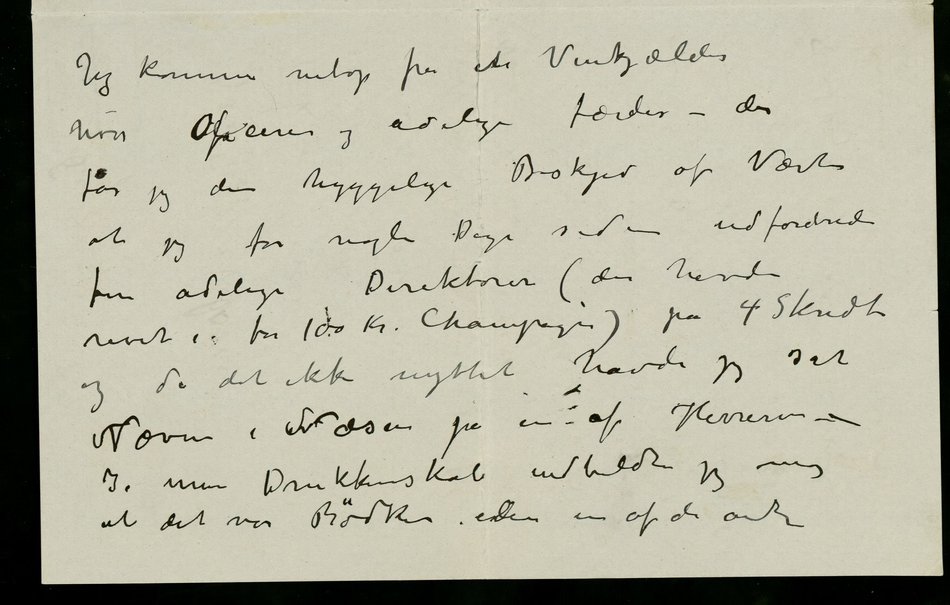 Jeg kommer netop fra en Vinkjælder
hvor Oficerer og adelige færdes – der
får jeg den hyggelige Beskjed af Værten
at jeg for nogle Dage siden udfordrede
fem adelige Direktører (der havde
revet i for 100 Kr. Champagne) på 4 Skridt
og da det ikke nyttet havde jeg sat
Næven i Næsen på en af Herrerne –
I min Drukkenskab indbildte jeg mig
at det var Bödker eller en af de andre